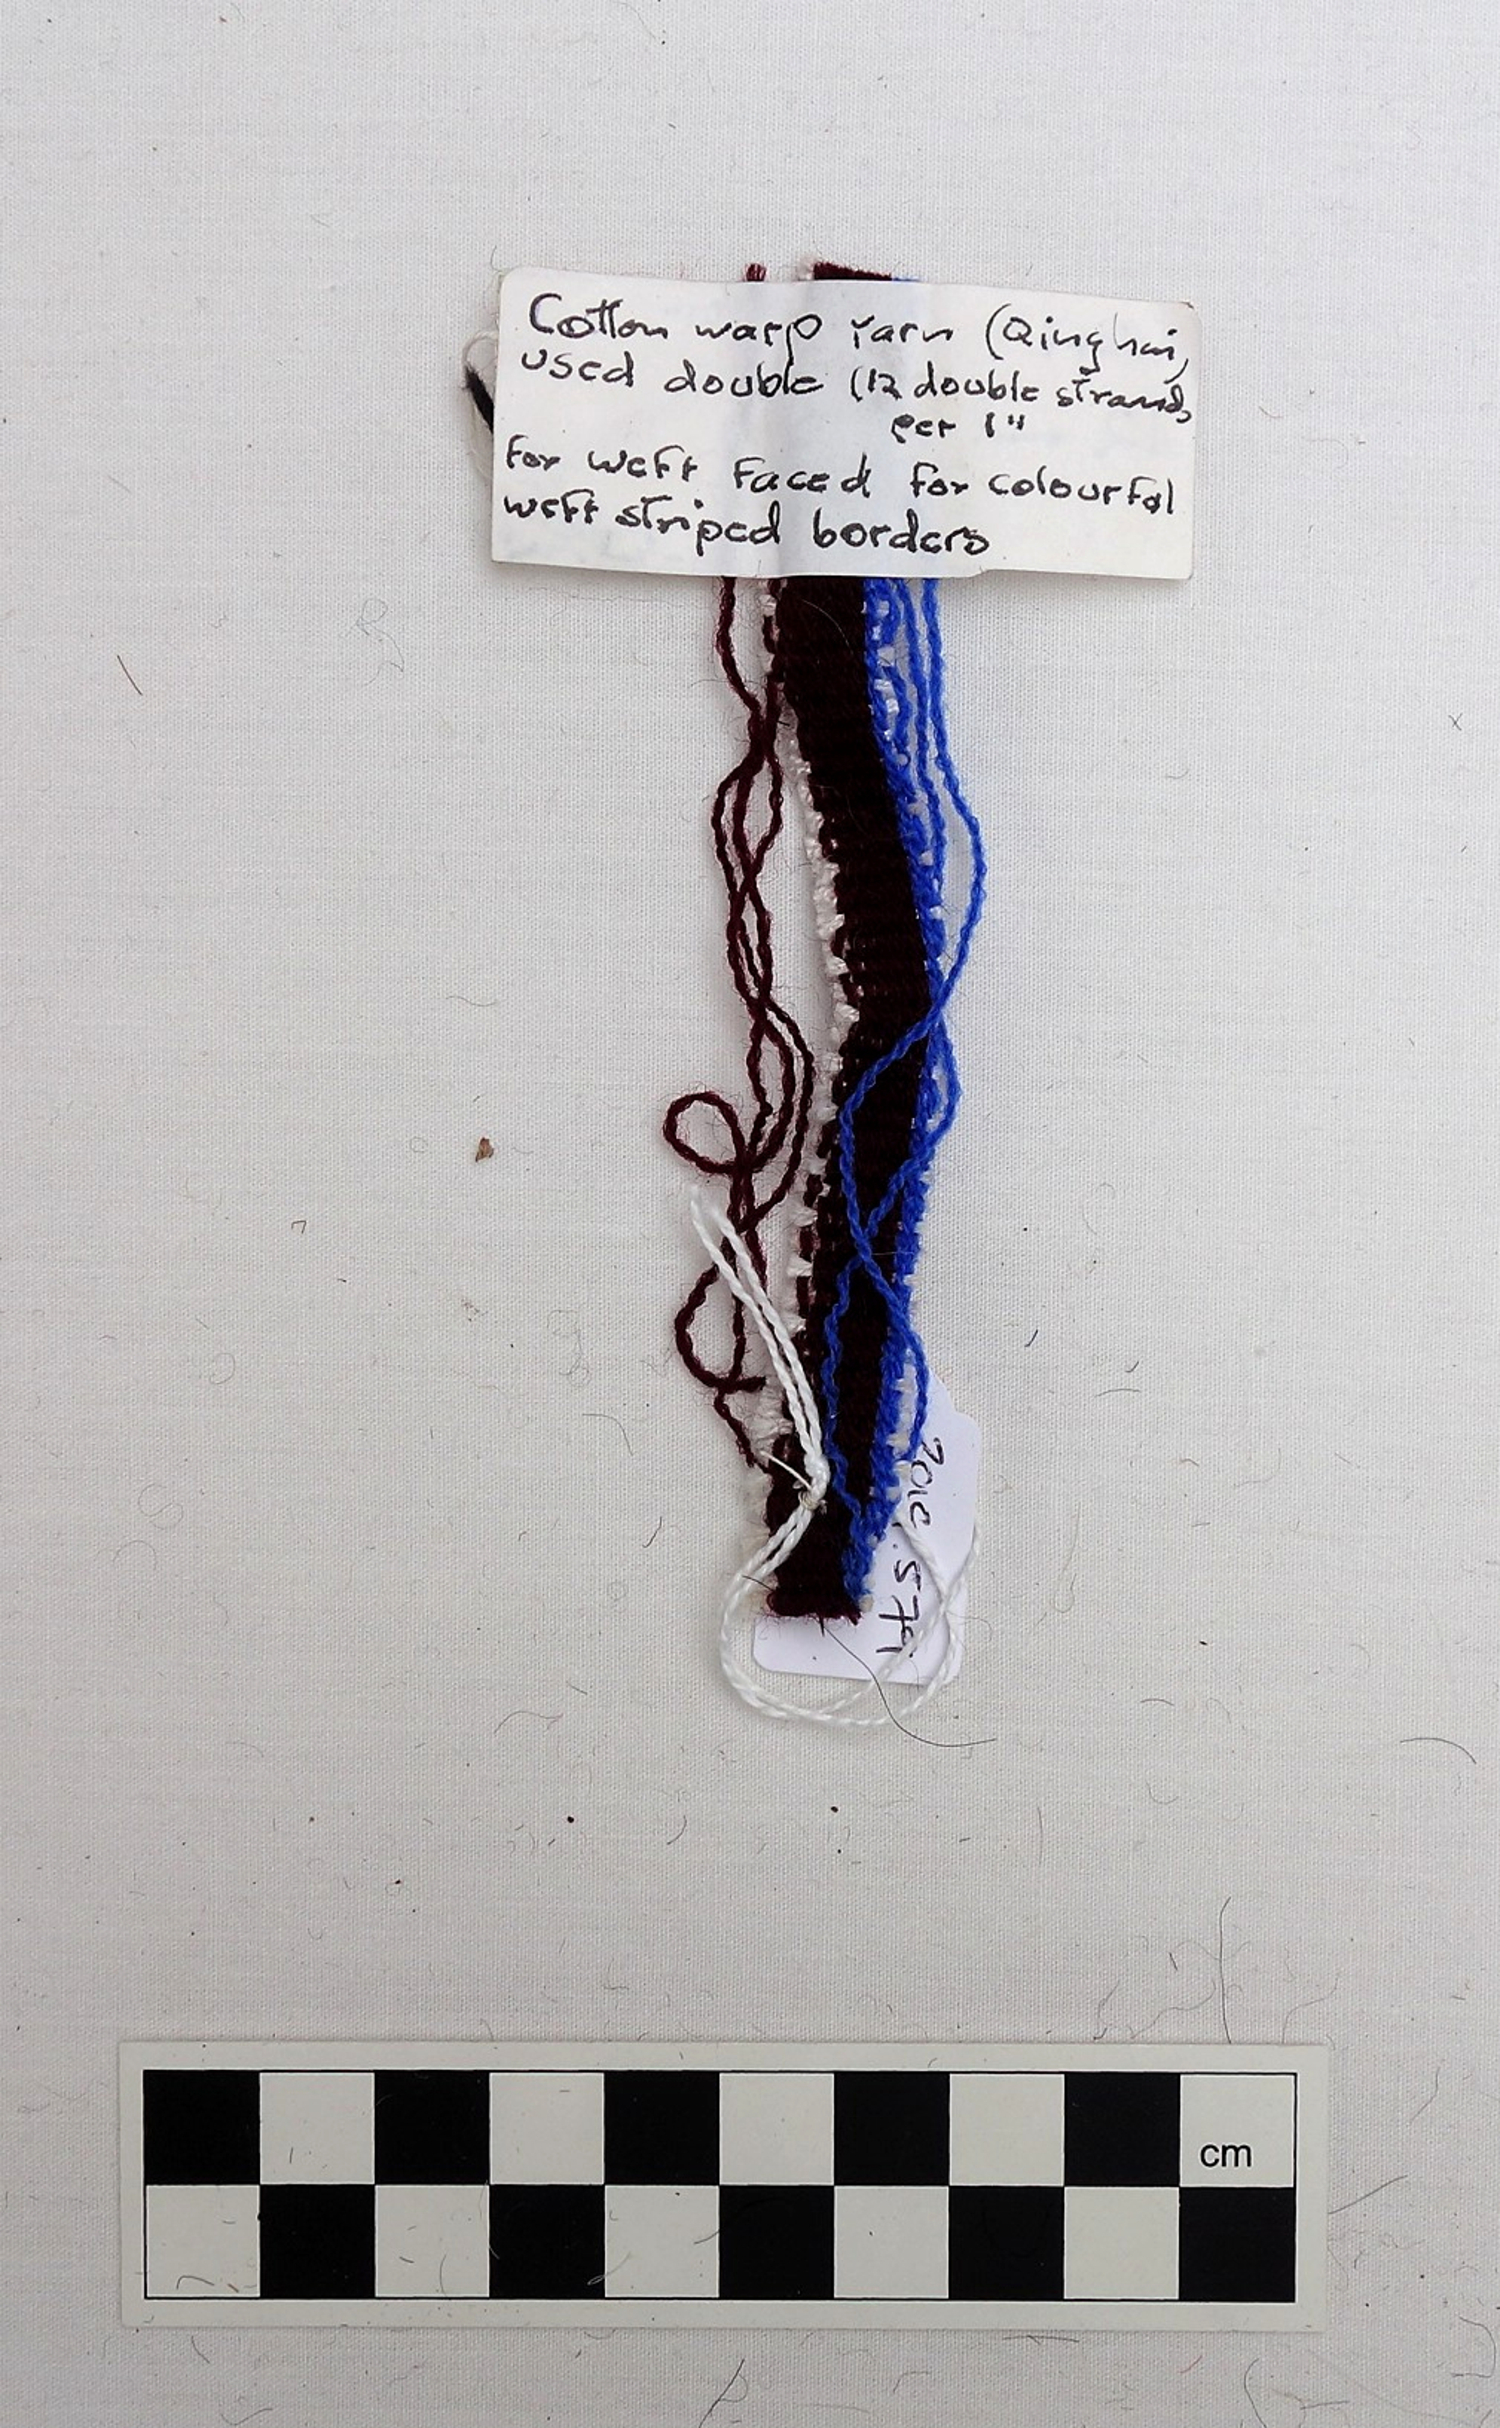 Cotton warp Yarn (Qinghai,
used double (12 double strands
per 1"
for weft faced for colourful
weft striped borders
.579
cm